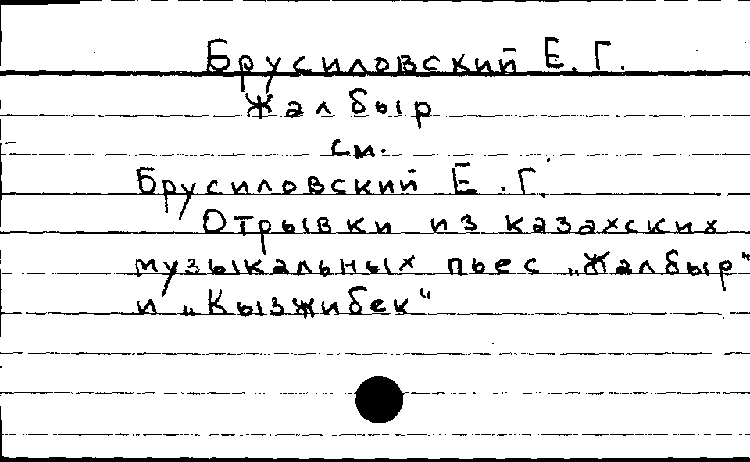 Брусиловский Е. Г.
Жалбыр
см.
Брусиловский Е. Г.
Отрывки из казахских
музыкальных пьес „Жалбыр"
и „Кызжибек"